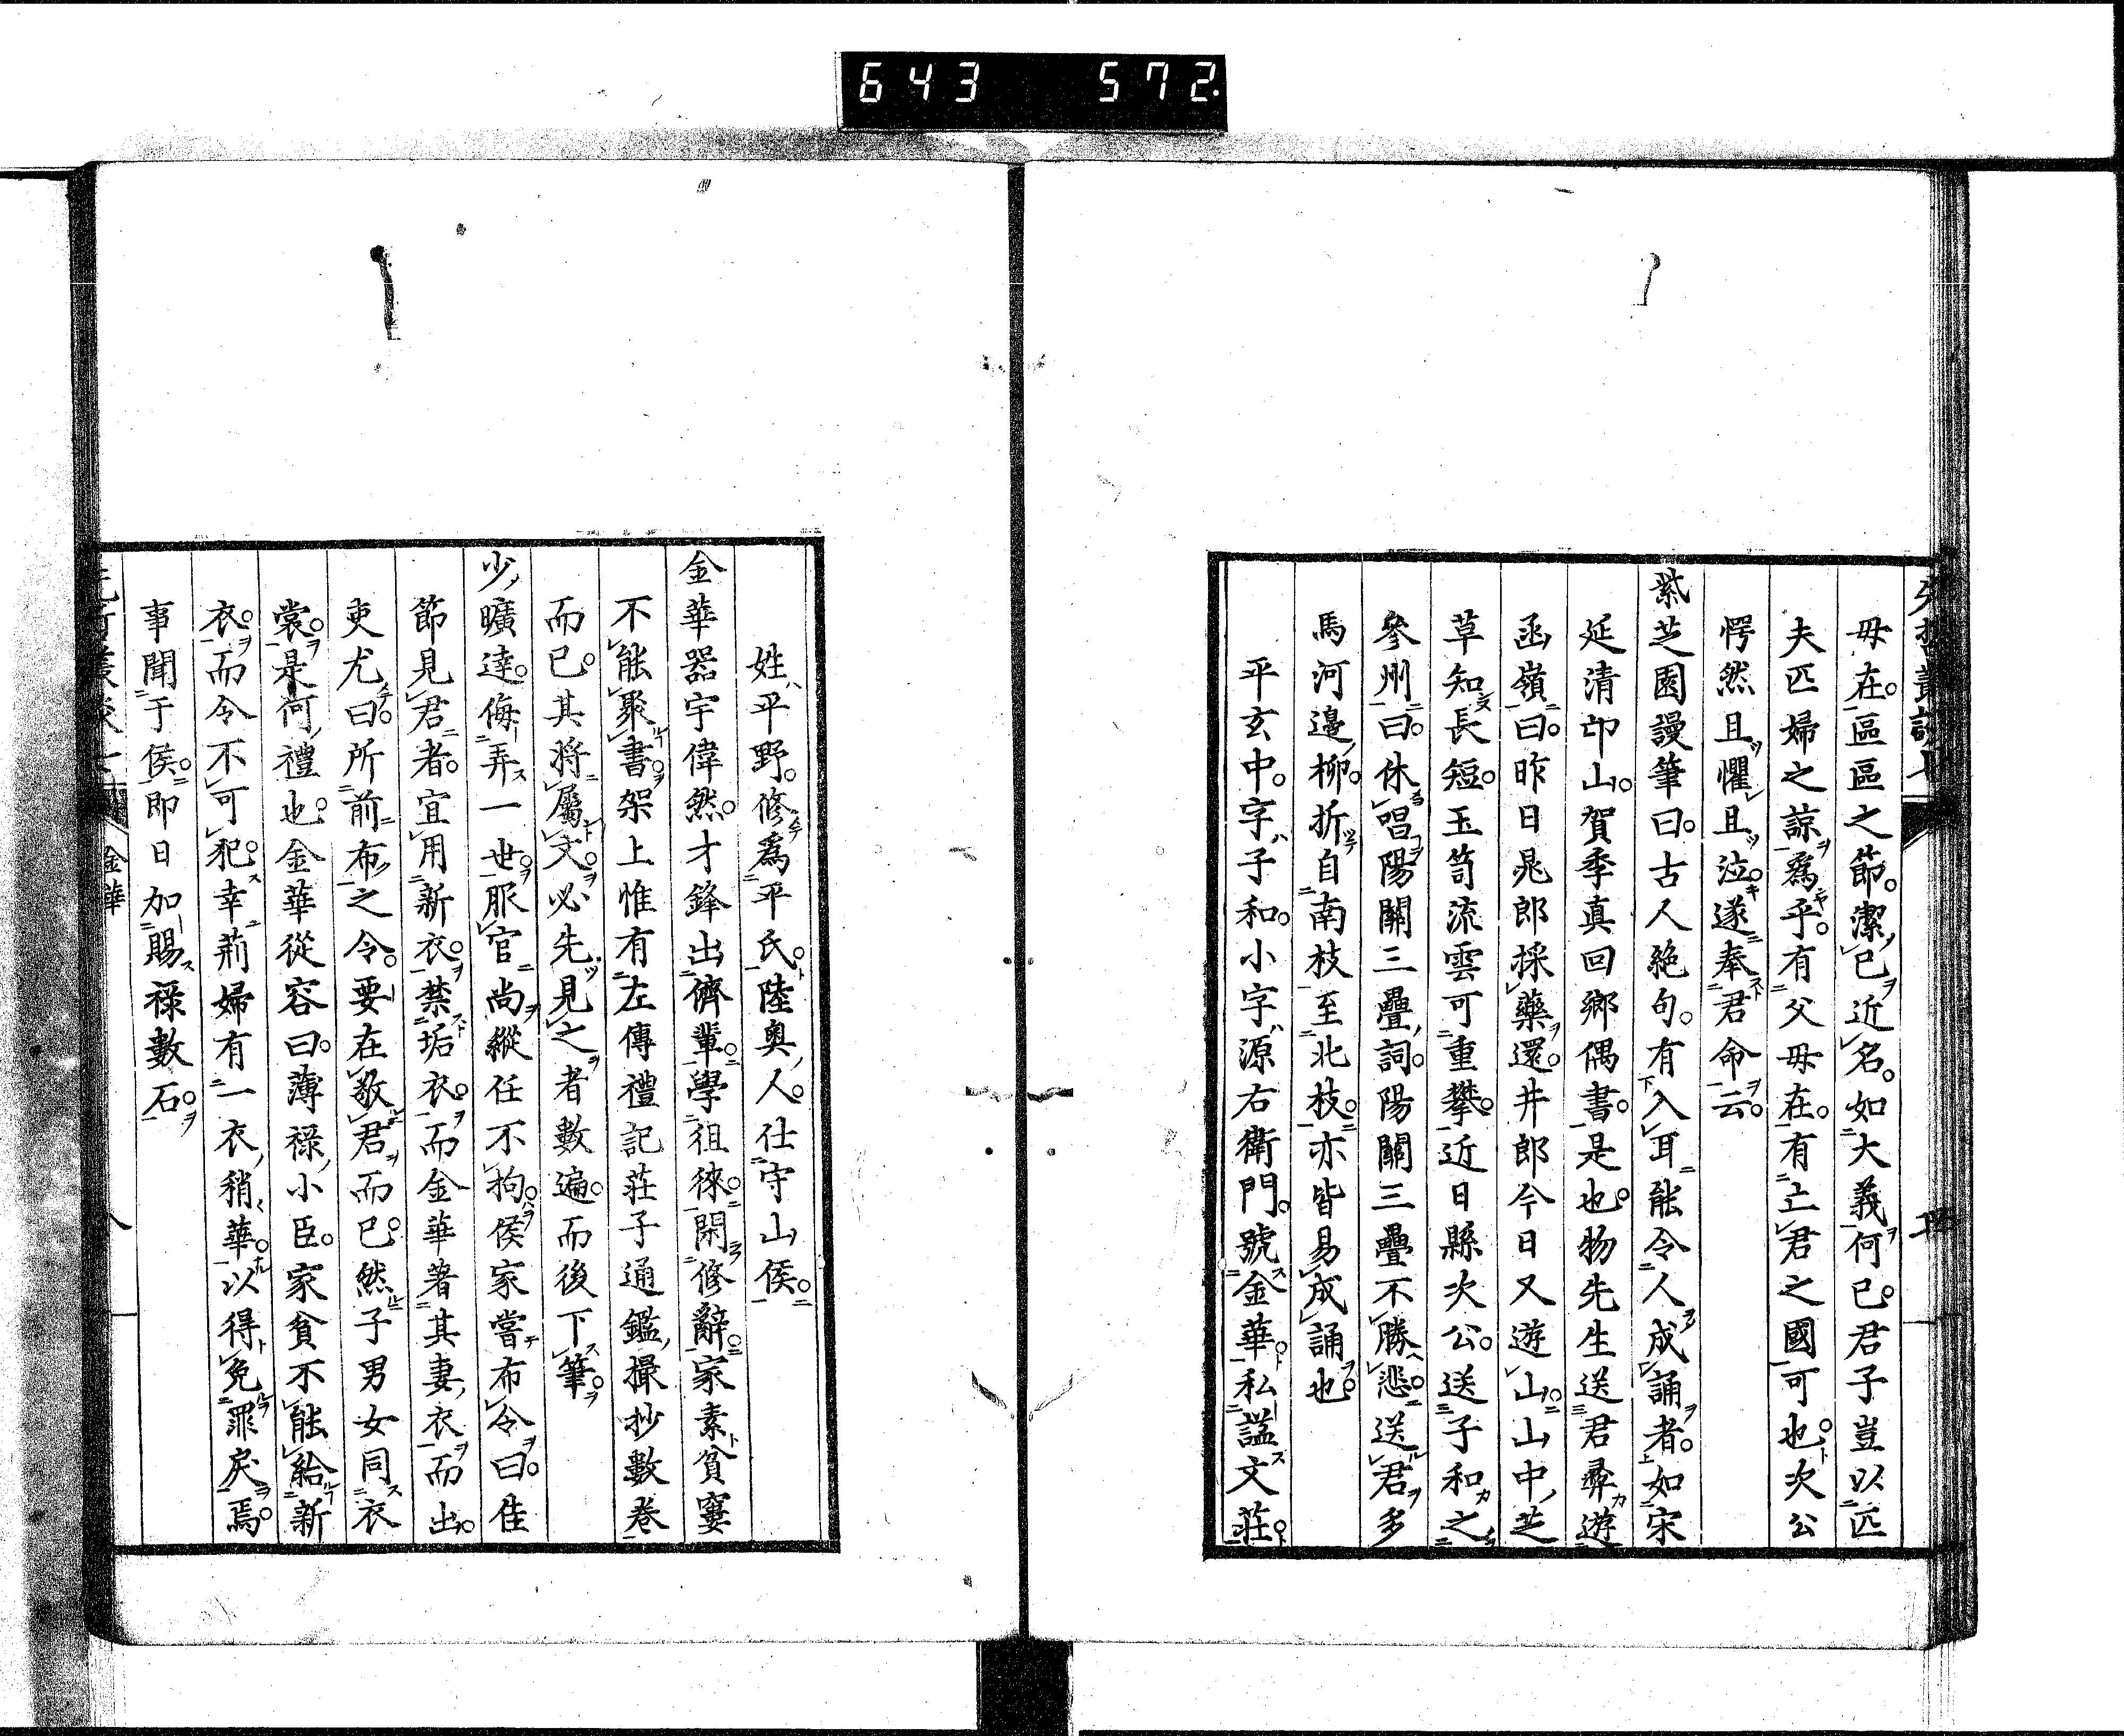 643 572.
母在。區區之節。潔己近名。如大義何已。君子豈以匹
夫匹婦之諒爲乎。有父母在。有亡君之國可也。次公
愕然且懼且泣。遂奉君命云。
紫芝園謾筆曰。古人絶句。有入耳能令人成誦者。如宋
延清卭山。賀季真回鄉偶書。是也。物先生送君彝遊
函嶺曰。昨日晁郎採藥還。井郎今日又遊山。山中芝
草知長短。玉笥流雲可重攀。近日縣次公。送子和之
參州曰。休唱陽關三疊詞。陽關三疊不勝悲。送君多
馬河邊柳。折自南枝至北枝。亦皆易成誦也。
平玄中。字子和。小字源右衛門。號金華。私謚文莊。
姓平野。修爲平氏。陸奥人。仕守山侯。
金華器宇偉然。才鋒出儕輩。學徂徠。閑修辭。家素貧窶
不能聚書。架上惟有左傳禮記莊子通鑑撮抄數巻
而已。其將屬文。必先見之者數遍。而後下筆。
少曠達。侮弄一世。服官尚縱任不拘。侯家嘗布令曰。佳
節見君者。宜用新衣。禁垢衣。而金華著其妻衣而出。
吏尤曰。所前布之令。要在敬君而已。然子男女同衣
裳。是何禮也。金華從容曰。薄祿小臣。家貧不能給新
衣。而令不可犯。幸荊婦有一衣稍華。以得免罪戻焉。
事聞于侯。即日加賜祿數石。
金華 八